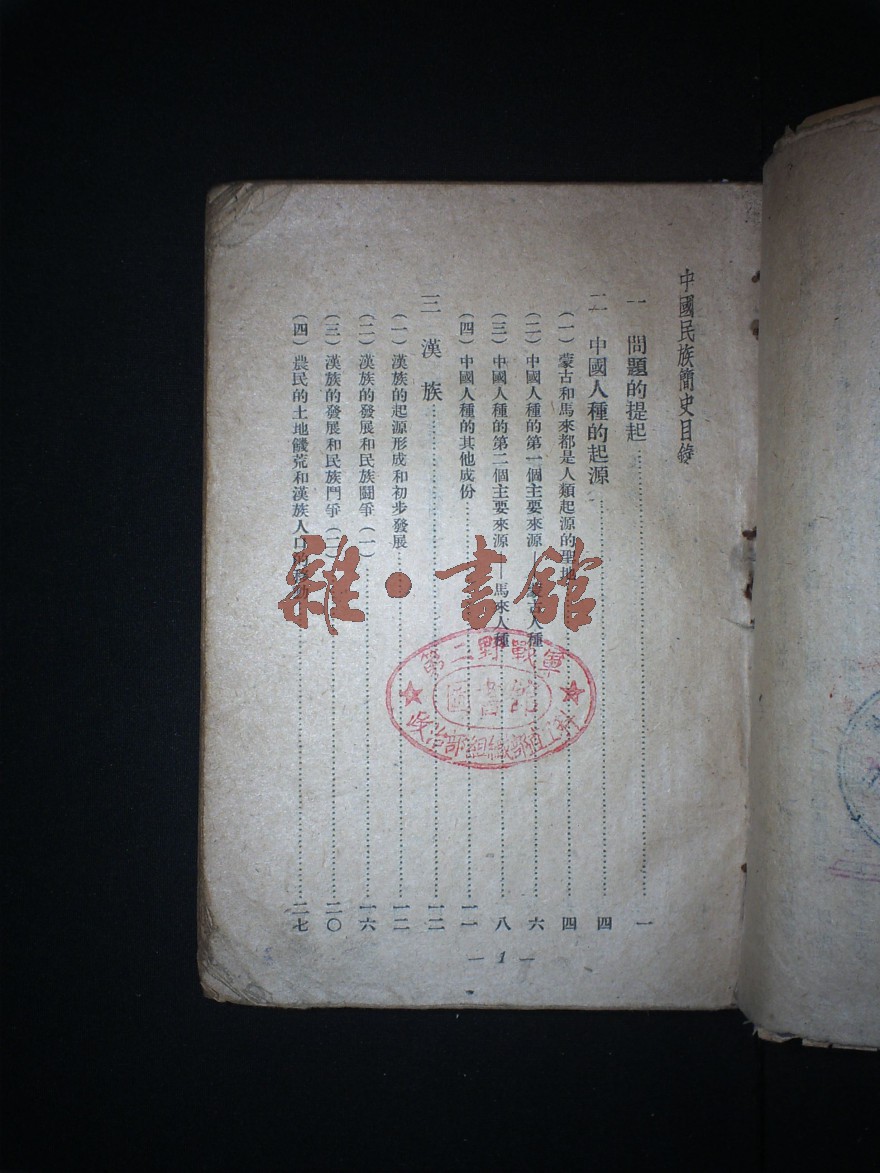 中國民族簡史目錄
一 問題的提起 一
二 中國人種的起源 四
(一) 蒙古和馬來都是人類起源的聖地 四
(二) 中國人種的第一個主要來源——蒙古人種 六
(三) 中國人種的第二個主要來源——馬來人種 八
(四) 中國人種的其他成份 一一
三 漢族 一二
(一) 漢族的起源形成和初步發展 一二
(二) 漢族的發展和民族鬪爭(一) 一六
(三) 漢族的發展和民族鬥爭(二) 二〇
(四) 農民的土地饑荒和漢族人口的移動 二七
— 1 —
雜·書館
第二野戰軍
圖書館
政治部組織部直工科